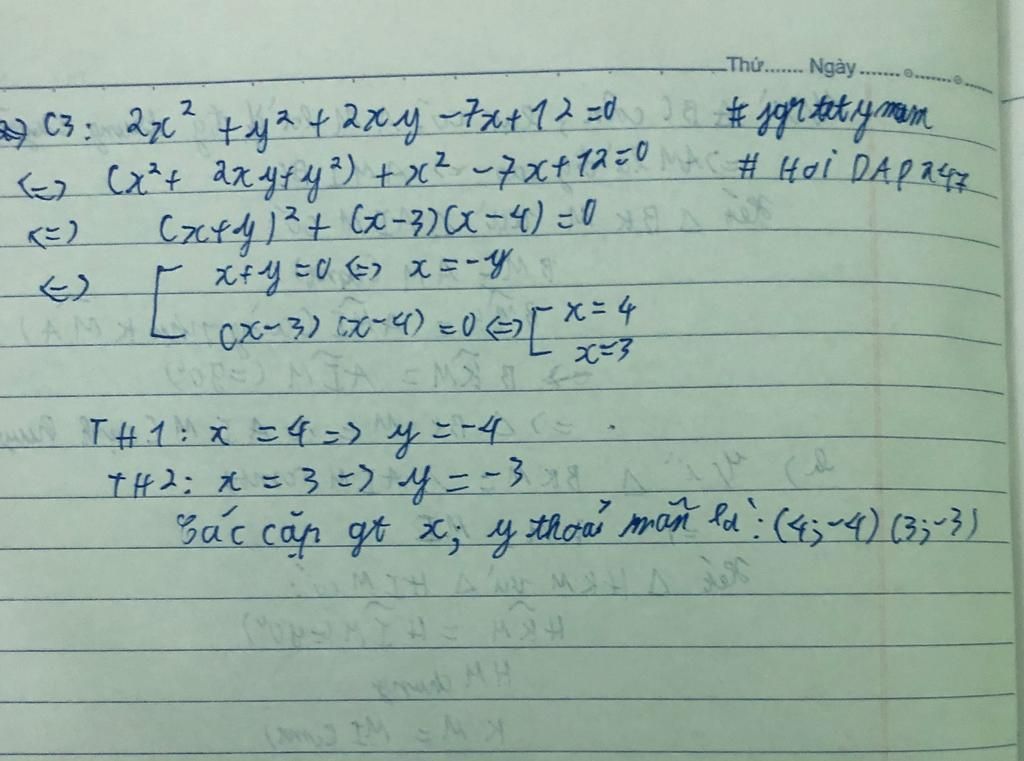 Thứ....... Ngày.......
C3: 2x² + y² + 2xy - 7x + 12 = 0
<=> (x² + 2xy + y²) + x² - 7x + 12 = 0 # Hoi DAP 247
<=> (x+y)² + (x-3)(x-4) = 0
<=> [ x+y = 0 <=> x = -y
(x-3) (x-4) = 0 <=> [ x = 4
x = 3
TH1: x = 4 => y = -4
TH2: x = 3 => y = -3
Các cặp gt x; y thoả mãn là: (4;-4) (3;-3)